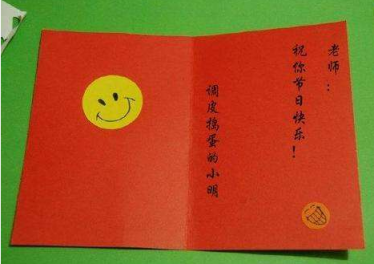 老师：
祝你节日快乐！
调皮捣蛋的小明